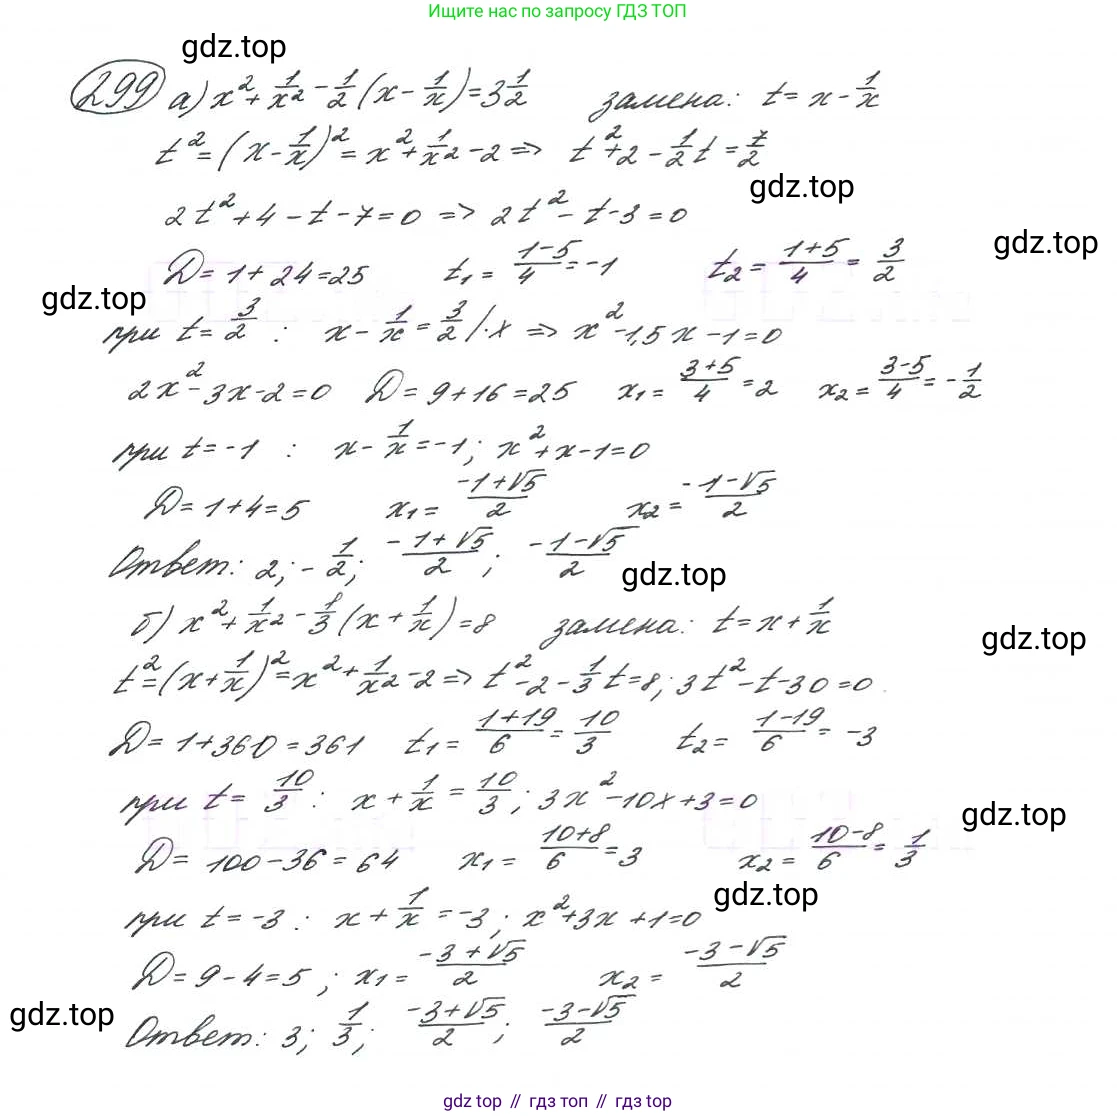 Ищите нас по запросу ГДЗ ТОП
gdz.top
299 а) x² + 1/x² - 1/2 (x - 1/x) = 3 1/2 замена: t = x - 1/x
t² = (x - 1/x)² = x² + 1/x² - 2 => t² + 2 - 1/2 t = 7/2
gdz.top
2t² + 4 - t - 7 = 0 => 2t² - t - 3 = 0
gdz.top
D = 1 + 24 = 25 t₁ = (1-5)/4 = -1 t₂ = (1+5)/4 = 3/2
gdz.top
при t = 3/2 : x - 1/x = 3/2 |·x => x² - 1,5x - 1 = 0
2x² - 3x - 2 = 0 D = 9 + 16 = 25 x₁ = (3+5)/4 = 2 x₂ = (3-5)/4 = -1/2
при t = -1 : x - 1/x = -1; x² + x - 1 = 0
D = 1 + 4 = 5 x₁ = (-1+√5)/2 x₂ = (-1-√5)/2
Ответ: 2; -1/2; (-1+√5)/2; (-1-√5)/2
gdz.top
б) x² + 1/x² - 1/3 (x + 1/x) = 8 замена: t = x + 1/x
gdz.top
t² = (x + 1/x)² = x² + 1/x² - 2 => t² - 2 - 1/3 t = 8; 3t² - t - 30 = 0
D = 1 + 360 = 361 t₁ = (1+19)/6 = 10/3 t₂ = (1-19)/6 = -3
при t = 10/3 : x + 1/x = 10/3; 3x² - 10x + 3 = 0
gdz.top
D = 100 - 36 = 64 x₁ = (10+8)/6 = 3 x₂ = (10-8)/6 = 1/3
gdz.top
при t = -3 : x + 1/x = -3; x² + 3x + 1 = 0
D = 9 - 4 = 5; x₁ = (-3+√5)/2 x₂ = (-3-√5)/2
gdz.top
Ответ: 3; 1/3; (-3+√5)/2; (-3-√5)/2
gdz.top // гдз.топ // gdz.top